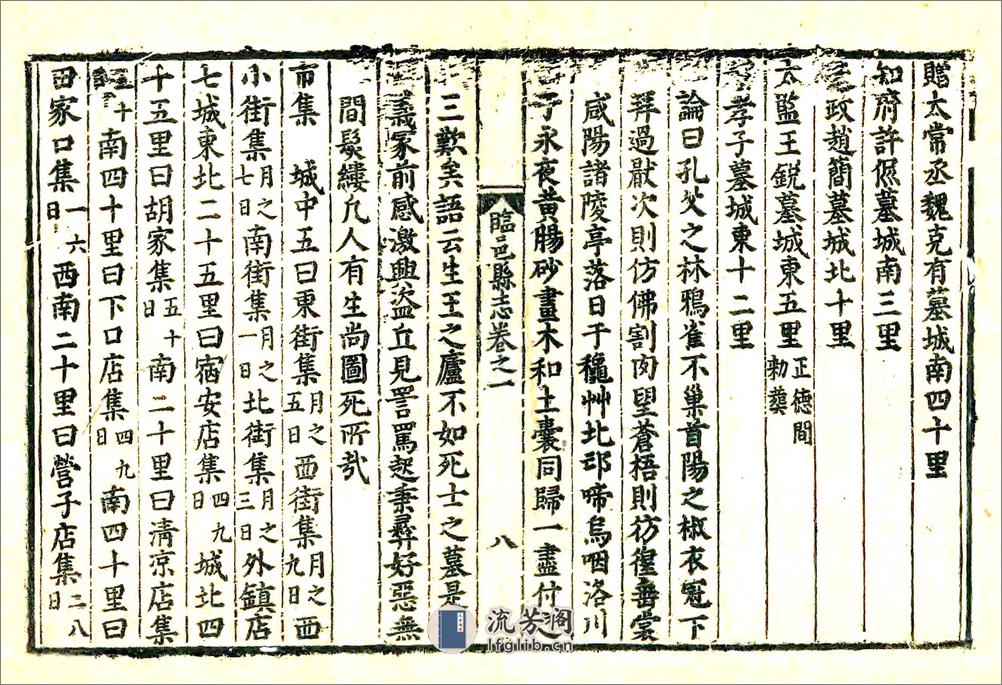 贈太常丞魏克有墓城南四十里
知府許墓城南三里
政趙簡墓城北十里
太監王銳墓城東五里正德間勅葬
孝子墓城東十二里
論曰孔父之林鴉雀不巢首陽之椒衣冠下
拜過厭次則仿佛割肉望蒼梧則彷徨垂裳
咸陽諸陵亭落日于龝艸北邙啼烏咽洛川
于永夜黄腸砂畫木和土囊同歸一盡付之
臨邑縣志卷之一 八
三歎矣語云生王之廬不如死士之墓是
義冢前感激興盜丘見詈罵起秉彛好惡無
間鬚縷凢人有生尚圖死所哉
市集 城中五曰東街集月之五日西街集月之九日西
小街集月之七日南街集月之一日北街集月之三日外鎮店
七城東北二十五里曰宿安店集四九日城北四
十五里曰胡家集五十日南二十里曰清凉店集
十南四十里曰下口店集四九日南四十里曰
田家口集一六日西南二十里曰營子店集二八日
流芳阁
lfglib.cn